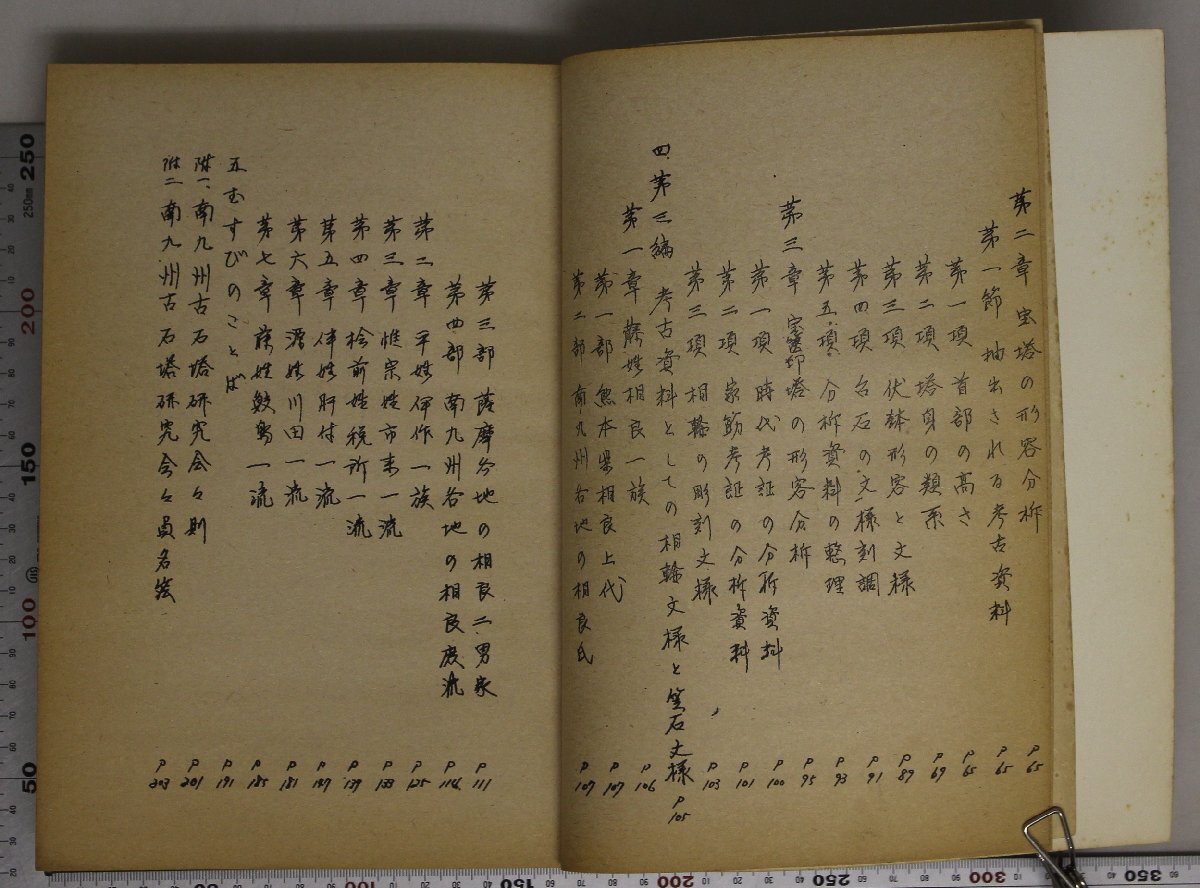 第二章 宝塔の形容分析 P65
第一節 抽出される考古資料 P65
第一項 首部の高さ P65
第二項 塔身の類系 P69
第三項 伏鉢形容と文様 P89
第四項 台石の文様刻調 P91
第五項 分析資料の整理 P93
第三章 宝篋印塔の形容分析 P95
第一項 時代考証の分析資料 P100
第二項 家筋考証の分析資料 P101
第三項 相輪の彫刻文様 P103
四 第三編 考古資料としての相輪文様と笠石文様 P105
第一章 藤姓相良一族 P106
第一部 熊本県相良上代 P107
第二部 南九州各地の相良氏 P107
第三部 薩摩各地の相良二男家 P111
第四部 南九州各地の相良庶流 P114
第二章 平姓伊作一族 P125
第三章 惟宗姓市来一流 P133
第四章 桧前姓税所一流 P139
第五章 伴姓肝付一流
第六章 源姓川田一流 P181
第七章 藤姓鮫島一流 P185
五 むすびのことば P191
附一、南九州古石塔研究会々則 P201
附二 南九州古石塔研究会々員名簿 P203
250
250mm
200
150
100
50
50
100
150
200
250
300
350